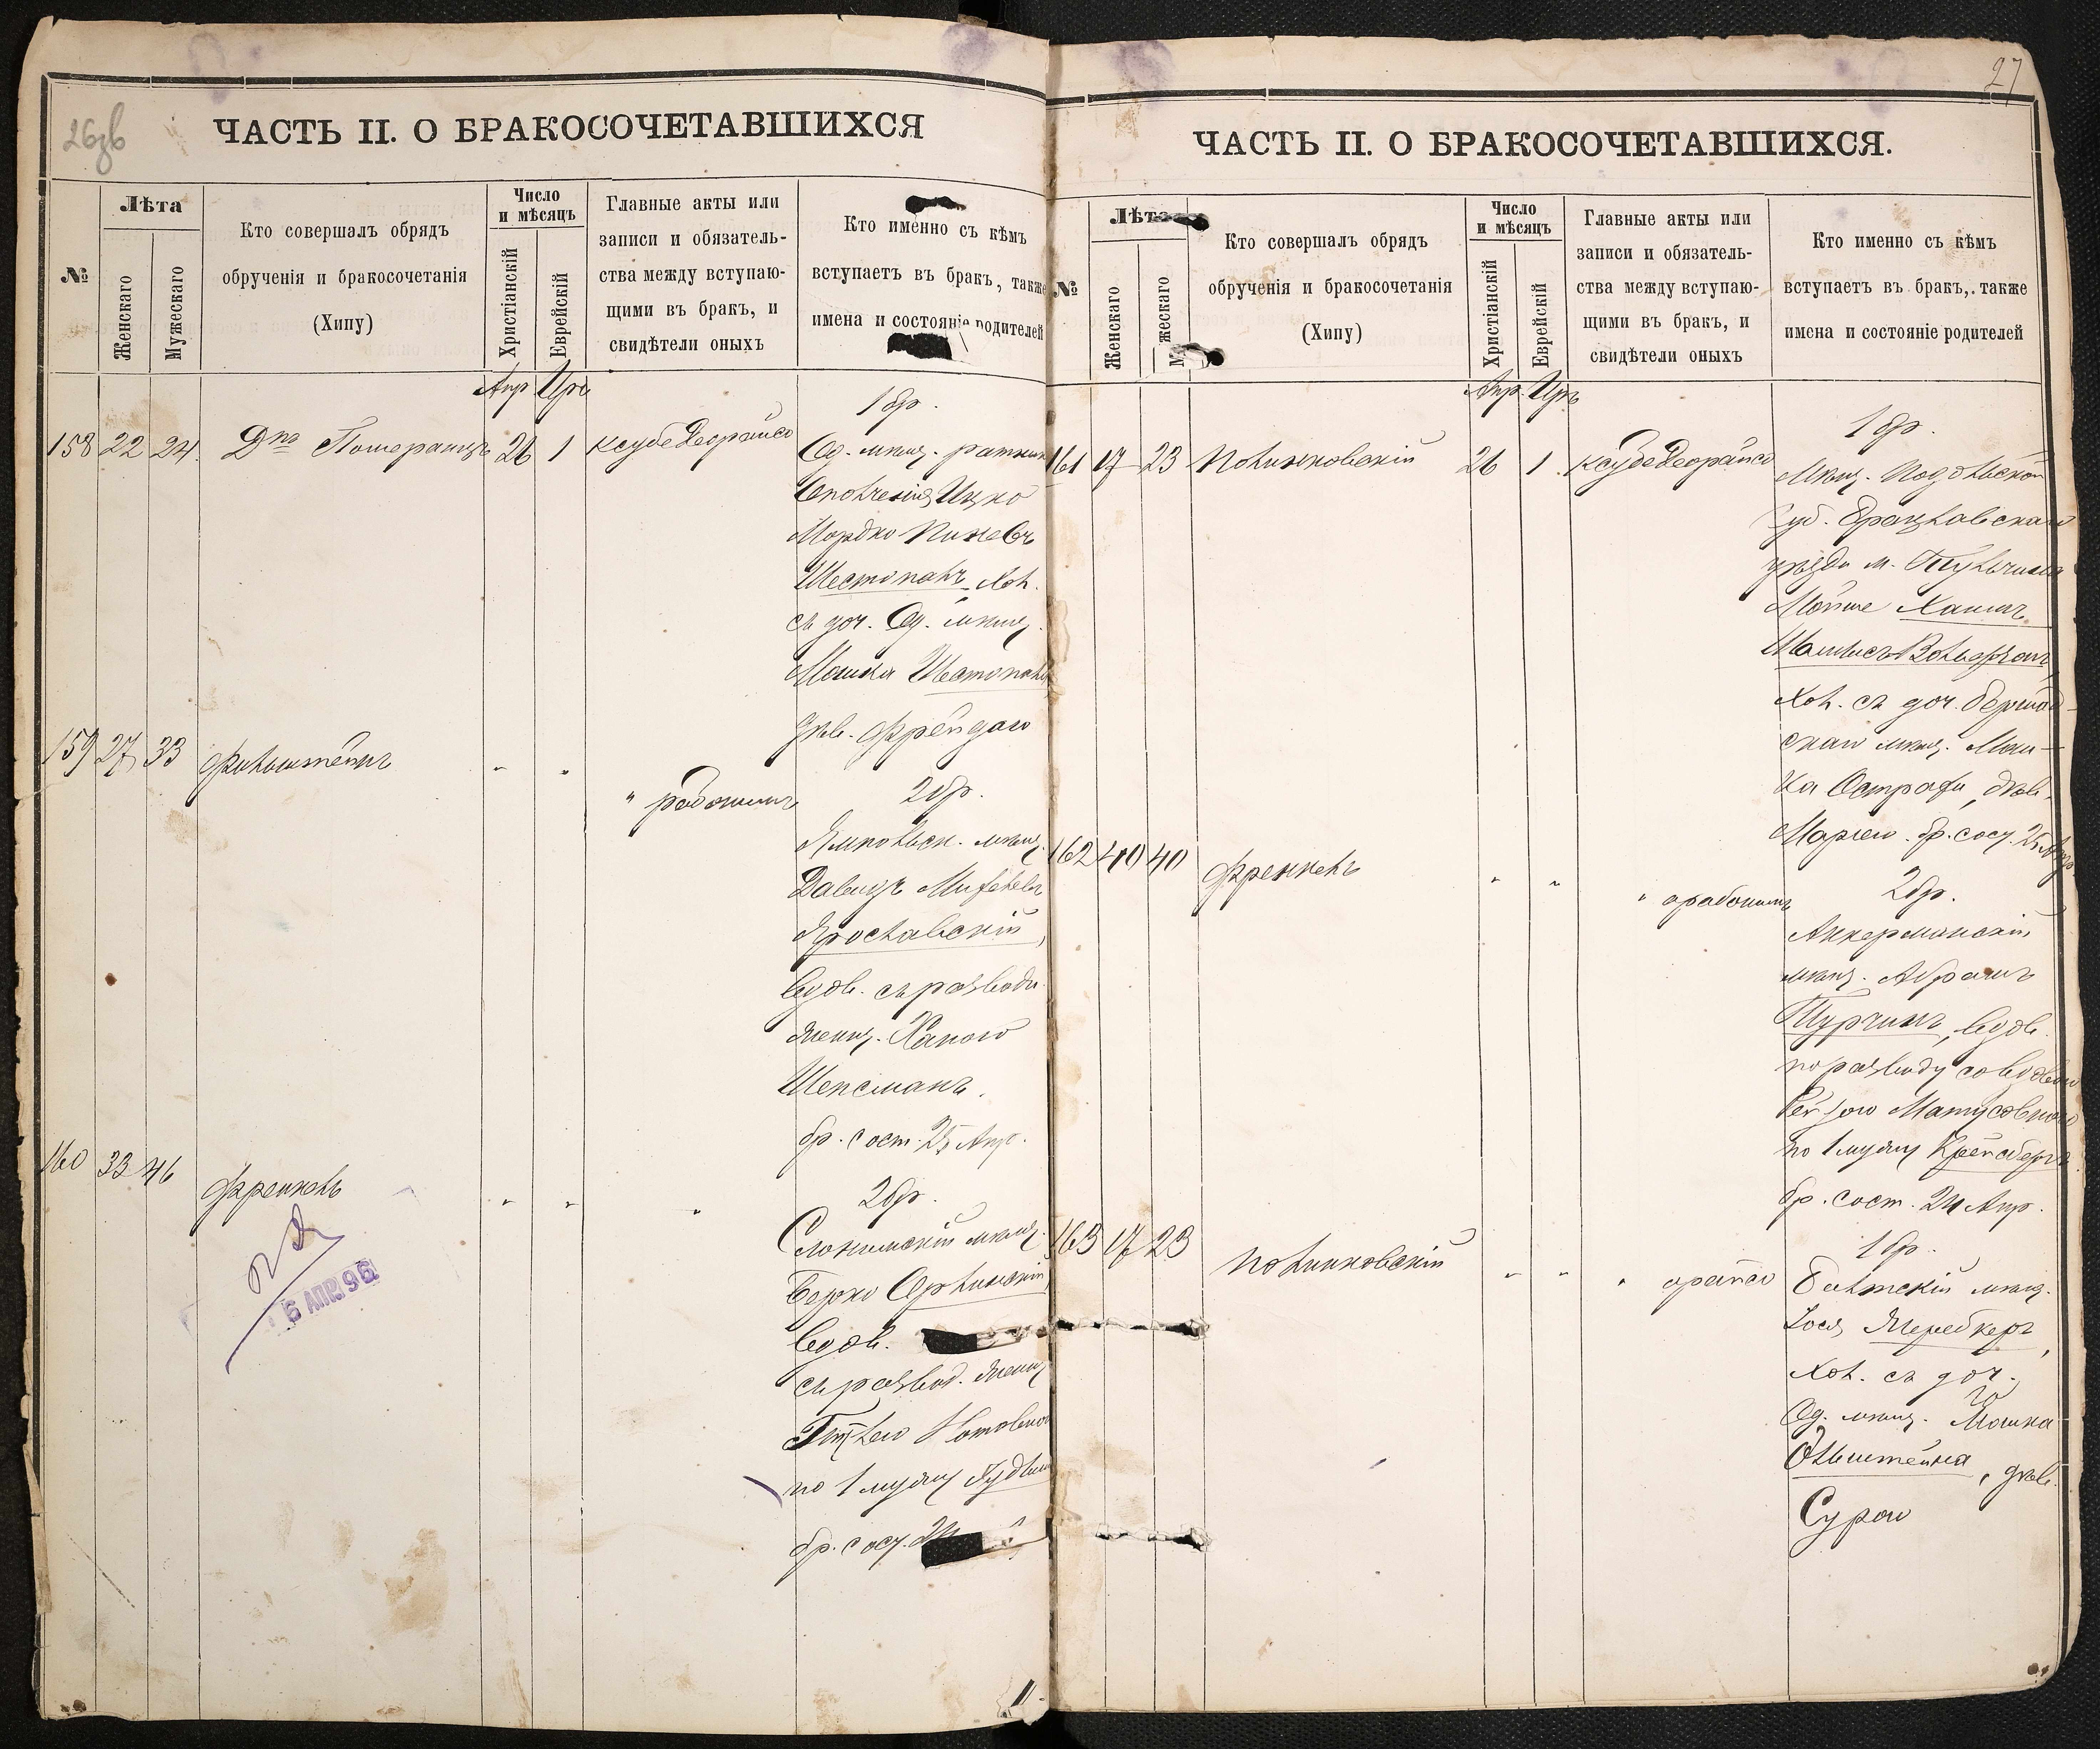 26об
ЧАСТЬ II. О БРАКОСОЧЕТАВШИХСЯ
№
Лѣта
Женскаго
Мужескаго
Кто совершалъ обрядъ
обрученія и бракосочетанія
(Хипу)
Число
и мѣсяцъ
Христіанскій
Еврейскій
Главные акты или
записи и обязатель-
ства между вступаю-
щими въ бракъ, и
свидѣтели оныхъ
Кто именно съ кѣмъ
вступаетъ въ бракъ, также
имена и состояніе родителей
Апр Иръ
158 22 24 Дпа Померанцъ 26 1 Ксубе Деорайсо
1 бр.
Од. мѣщ. ратник
Ополченія Ицко
Мордко Пиневъ
Шестопалъ, хол.
съ доч. Од. мѣщ.
Мошка Шестопала
дѣв. Фрейдою
159 27 33 Фильштейнъ " " " рабонимъ
2 бр.
Ямпольск. мѣщ.
Давидъ
Ярославскій,
вдов. съ разводн.
женщ. Ханою
Шепсманъ.
бр. сост. 25 Апр.
160 33 46 Френкель " " "
2 бр.
Слонимскій мѣщ.
Берко Орлинскій
вдов.
съ развод. женщ.
по 1 мужу
бр. сост. 24
6 АПР. 96
27
ЧАСТЬ II. О БРАКОСОЧЕТАВШИХСЯ.
№
Лѣта
Женскаго
Мужескаго
Кто совершалъ обрядъ
обрученія и бракосочетанія
(Хипу)
Число
и мѣсяцъ
Христіанскій
Еврейскій
Главные акты или
записи и обязатель-
ства между вступаю-
щими въ бракъ, и
свидѣтели оныхъ
Кто именно съ кѣмъ
вступаетъ въ бракъ, также
имена и состояніе родителей
Апр Иръ
161 17 23 Полинковскій 26 1 Ксубе Деорайсо
1 бр.
Мѣщ. Подольской
Губ. Брацлавскаго
уѣзда м. Тульчина
Мойше Хаимъ
хол. съ доч. Бершад-
скаго мѣщ.
дѣв.
бр. сост. 25 Апр.
162 40 40 Френкель " " " драбонимъ
2 бр.
Аккерманскій
мѣщ. Абрамъ
Турчинъ, вдов.
по разводу со вдовою
Рейзою Матусовною
по 1 мужу Крейсбергъ
бр. сост. 24 Апр.
163 17 23 Полинковскій " " " драйсо
1 бр.
Балтскій мѣщ.
Іося Жеребкеръ,
хол. съ доч.
Од. мѣщ. Мошка
Ольштейна, дѣв.
Сурою